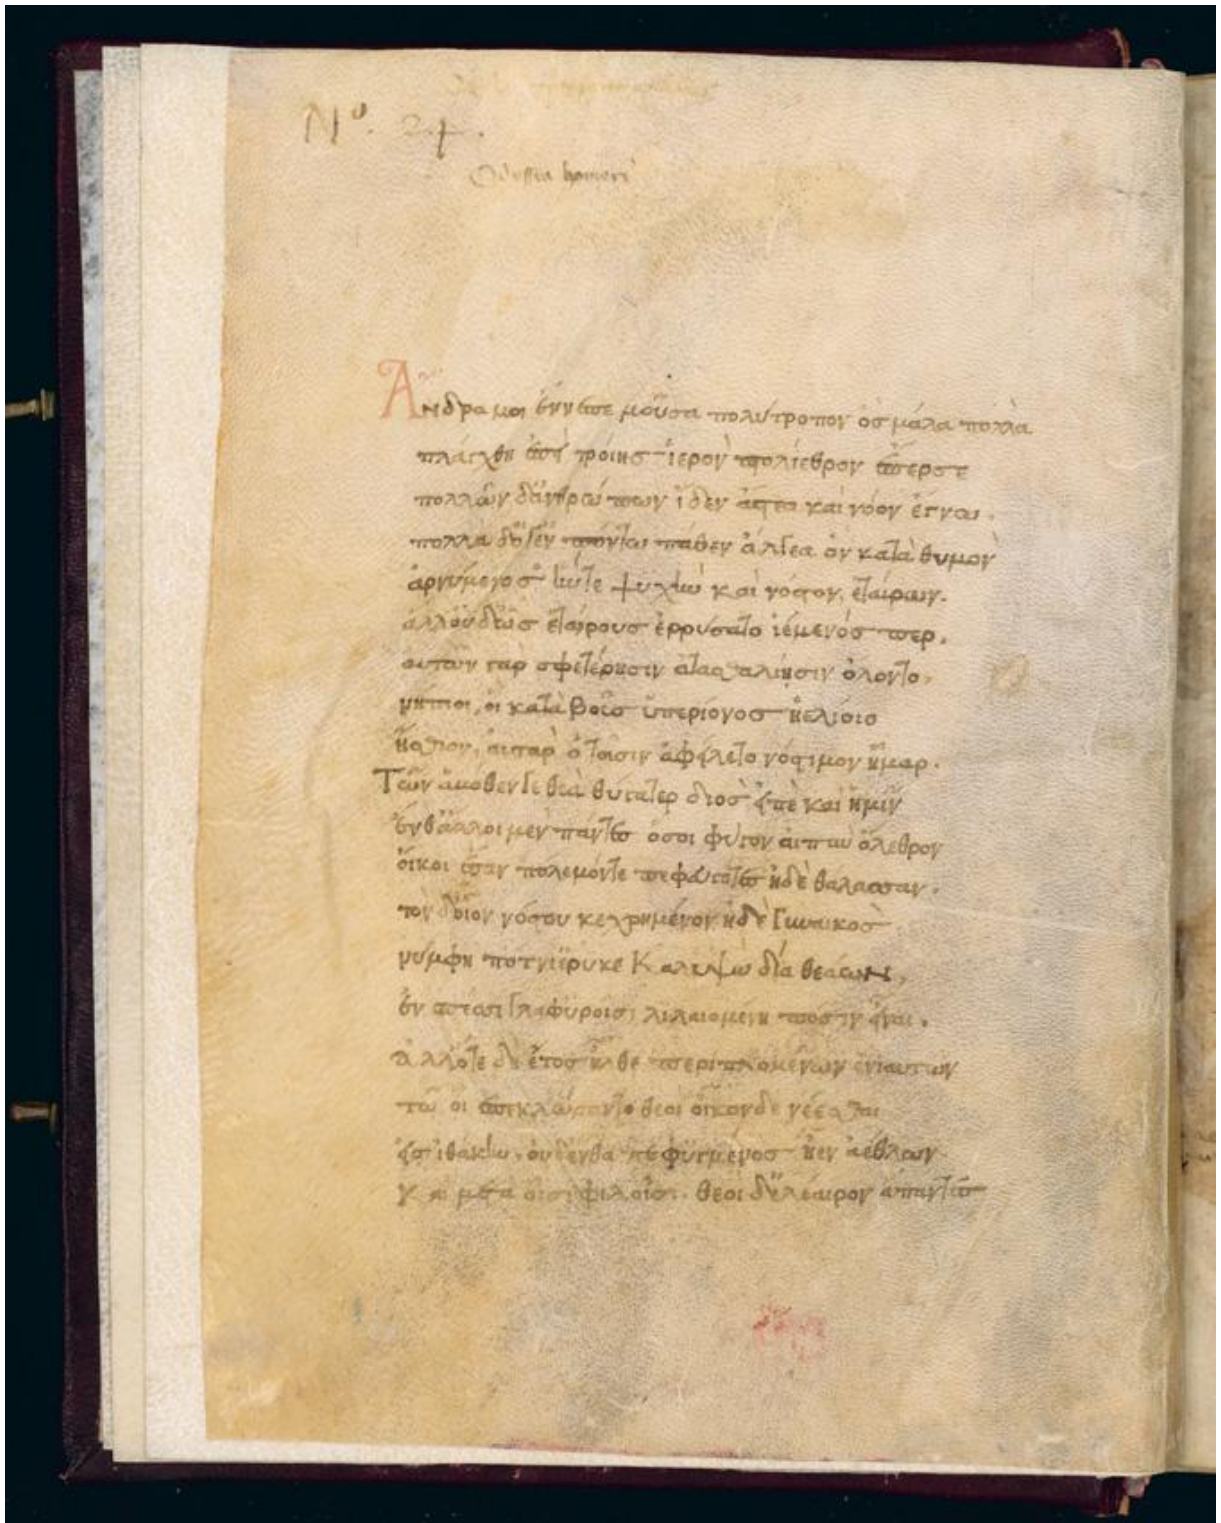 Nº. 24.
Odyssea homeri
Ἄνδρα μοι ἔννεπε μοῦσα πολύτροπον ὃς μάλα πολλὰ
πλάγχθη ἐπεὶ τροίης ἱερὸν πτολίεθρον ἔπερσε
πολλῶν δ' ἀνθρώπων ἴδεν ἄστεα καὶ νόον ἔγνω.
πολλὰ δ' ὅγ' ἐν πόντω πάθεν ἄλγεα ὃν κατὰ θυμὸν
ἀρνύμενος ἥν τε ψυχὴν καὶ νόστον ἑταίρων.
ἀλλ' οὐδ' ὣς ἑτάρους ἐρρύσατο ἱέμενός περ.
αὐτῶν γὰρ σφετέρησιν ἀτασθαλίησιν ὄλοντο.
νήπιοι, οἳ κατὰ βοῦς ὑπερίονος ἠελίοιο
ἤσθιον, αὐτὰρ ὁ τοῖσιν ἀφείλετο νόστιμον ἦμαρ.
Τῶν ἀμόθεν γε θεὰ θύγατερ διὸς εἰπὲ καὶ ἡμῖν
ἔνθ' ἄλλοι μὲν πάντες ὅσοι φύγον αἰπὺν ὄλεθρον
οἴκοι ἔσαν πόλεμόν τε πεφευγότες ἠδὲ θάλασσαν.
τὸν δ' οἶον νόστου κεχρημένον ἠδὲ γυναικὸς
νύμφη πότνι' ἔρυκε Καλυψὼ δῖα θεάων,
ἐν σπέσσι γλαφυροῖσι λιλαιομένη πόσιν εἶναι.
ἀλλ' ὅτε δὴ ἔτος ἦλθε περιπλομένων ἐνιαυτῶν
τῶ οἱ ἐπεκλώσαντο θεοὶ οἶκον δὲ νέεσθαι
εἰς ἰθάκην. οὐδ' ἔνθα πεφυγμένος ἦεν ἀέθλων
καὶ μετὰ οἷσι φίλοισι. θεοὶ δ' ἐλέαιρον ἅπαντες